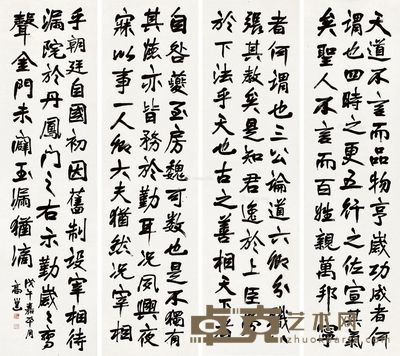 天道不言而品物亨歲功成者何
謂也四時之吏五行之佐宣其氣
矣聖人不言而百姓親萬邦寧
者何謂也三公論道六卿分職
張其教矣是知君逸於上臣勞
於下法乎天也古之善相天下者
自咎夔至房魏可數也是不獨有
其德亦皆務於勤耳況夙興夜
寐以事一人卿大夫猶然況宰相
乎朝廷自國初因舊制設宰相待
漏院於丹鳳門之右示勤
聲金門未闢玉漏猶滴
戊午嘉平月
艺术网